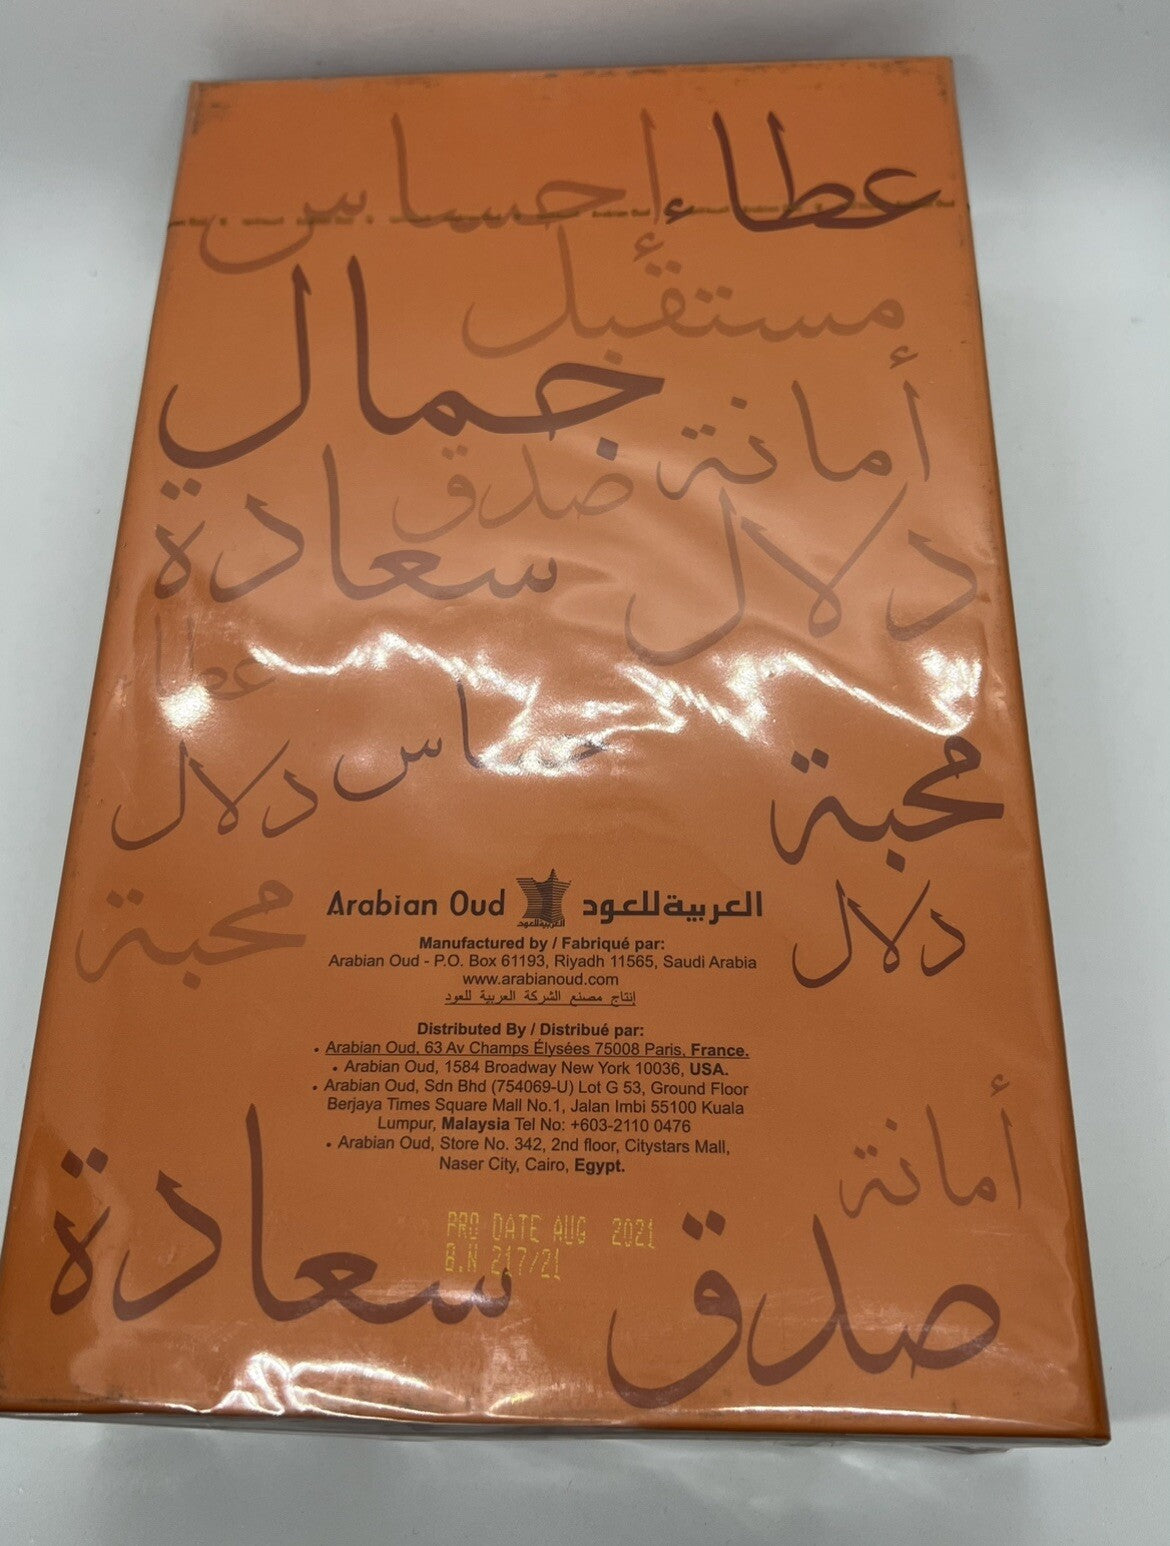 عطاء إحساس
مستقبل
جمال
أمانة
صدق
سعادة
دلال
عطاء
إحساس
دلال
محبة
محبة
دلال
Arabian Oud العربية للعود
العربية للعود
Manufactured by / Fabriqué par:
Arabian Oud - P.O. Box 61193, Riyadh 11565, Saudi Arabia
www.arabianoud.com
إنتاج مصنع الشركة العربية للعود
Distributed By / Distribué par:
• Arabian Oud, 63 Av Champs Élysées 75008 Paris, France.
• Arabian Oud, 1584 Broadway New York 10036, USA.
• Arabian Oud, Sdn Bhd (754069-U) Lot G 53, Ground Floor
Berjaya Times Square Mall No.1, Jalan Imbi 55100 Kuala
Lumpur, Malaysia Tel No: +603-2110 0476
• Arabian Oud, Store No. 342, 2nd floor, Citystars Mall,
Naser City, Cairo, Egypt.
أمانة
سعادة
PRO DATE AUG 2021
B.N 217/21
صدق